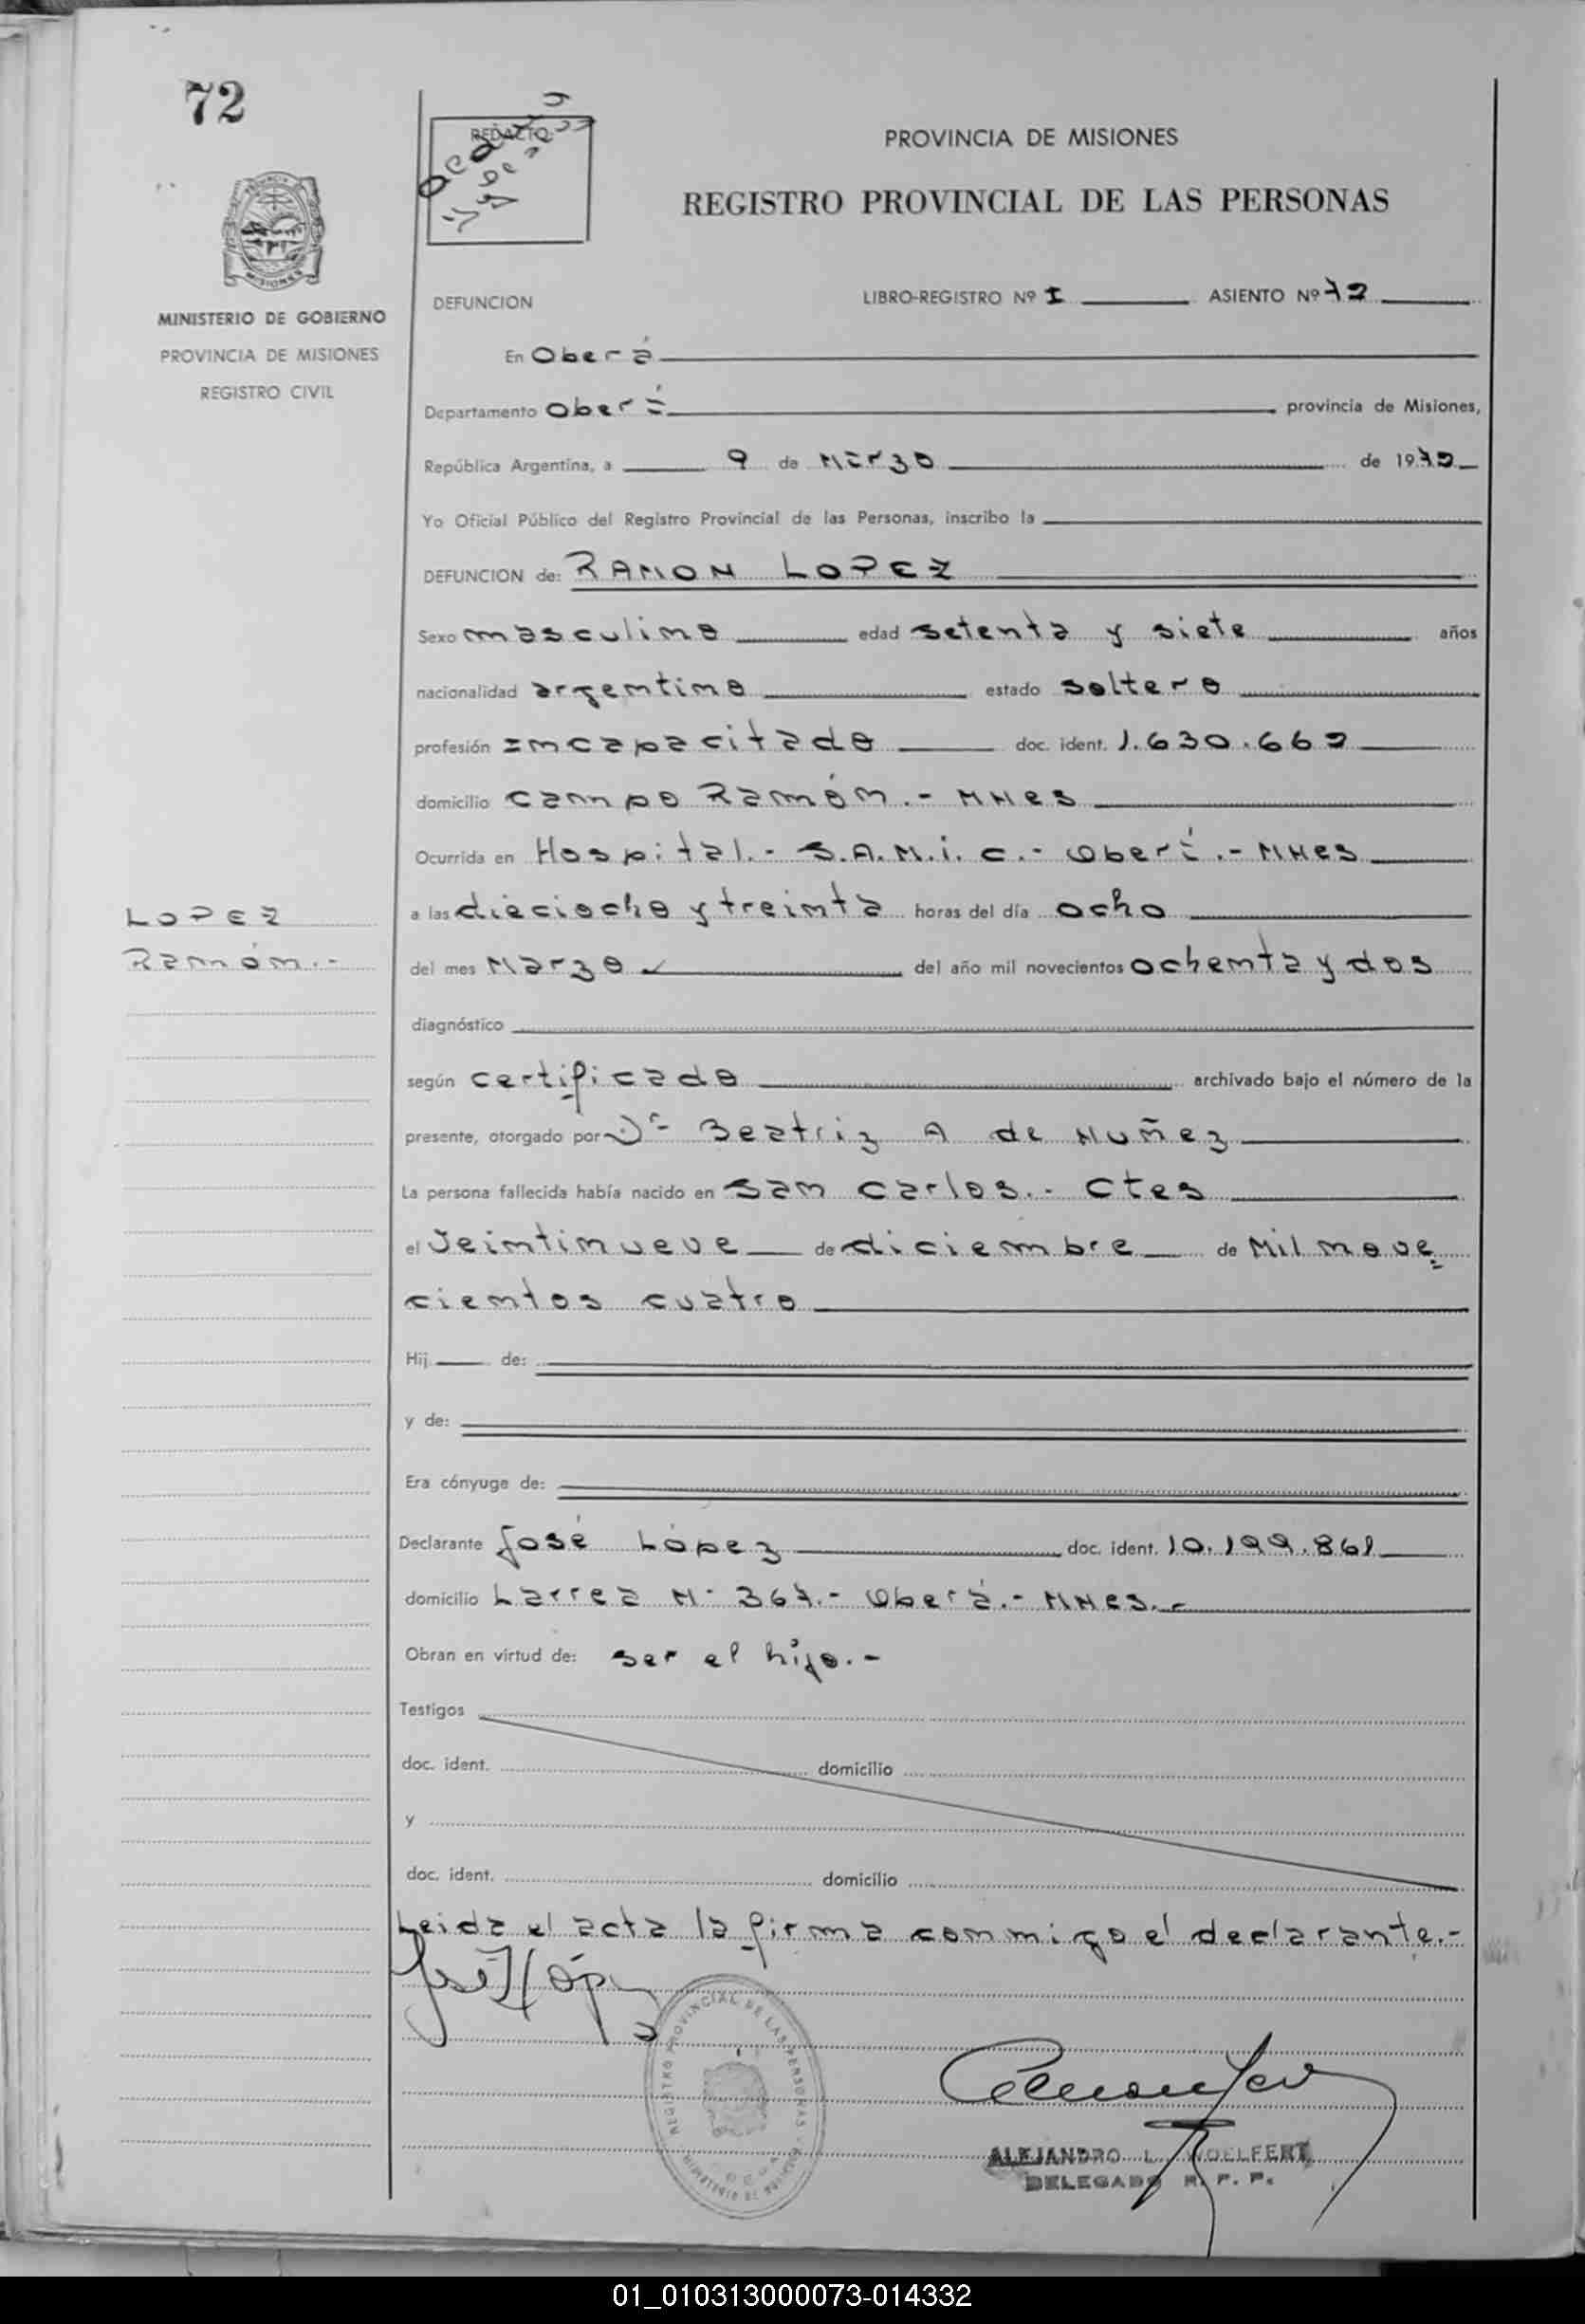 72
REDACTO:
PROVINCIA DE MISIONES
REGISTRO PROVINCIAL DE LAS PERSONAS
MISIONES
MINISTERIO DE GOBIERNO
PROVINCIA DE MISIONES
REGISTRO CIVIL
DEFUNCION LIBRO-REGISTRO Nº I ASIENTO Nº 72
En Oberá
Departamento Oberá provincia de Misiones,
República Argentina, a 9 de Marzo de 19
Yo Oficial Público del Registro Provincial de las Personas, inscribo la
DEFUNCION de: RAMON LOPEZ
Sexo masculino edad setenta y siete años
nacionalidad argentino estado soltero
profesión Incapacitado doc. ident. 1.630.662
domicilio Campo Ramón.- MNes
Ocurrida en Hospital.- S.A.M.i.c.- Oberá.- MNes
LOPEZ
Ramón.-
a las dieciocho y treinta horas del día ocho
del mes Marzo del año mil novecientos ochenta y dos
diagnóstico
según certificado archivado bajo el número de la
presente, otorgado por Dr- Beatriz A de Nuñez
La persona fallecida había nacido en San Carlos.- Ctes
el Veintinueve de diciembre de Mil nove=
cientos cuatro
Hij de:
y de:
Era cónyuge de:
Declarante José López doc. ident. 10.199.861
domicilio Larrea N- 367.- Oberá.- MNes.-
Obran en virtud de: ser el hijo.-
Testigos
doc. ident. domicilio
y
doc. ident. domicilio
Leida el acta la firma conmigo el declarante.-
José López
REGISTRO PROVINCIAL DE LAS PERSONAS
ALEJANDRO L. WOELFERT
DELEGADO R. P. P.
01_010313000073-014332